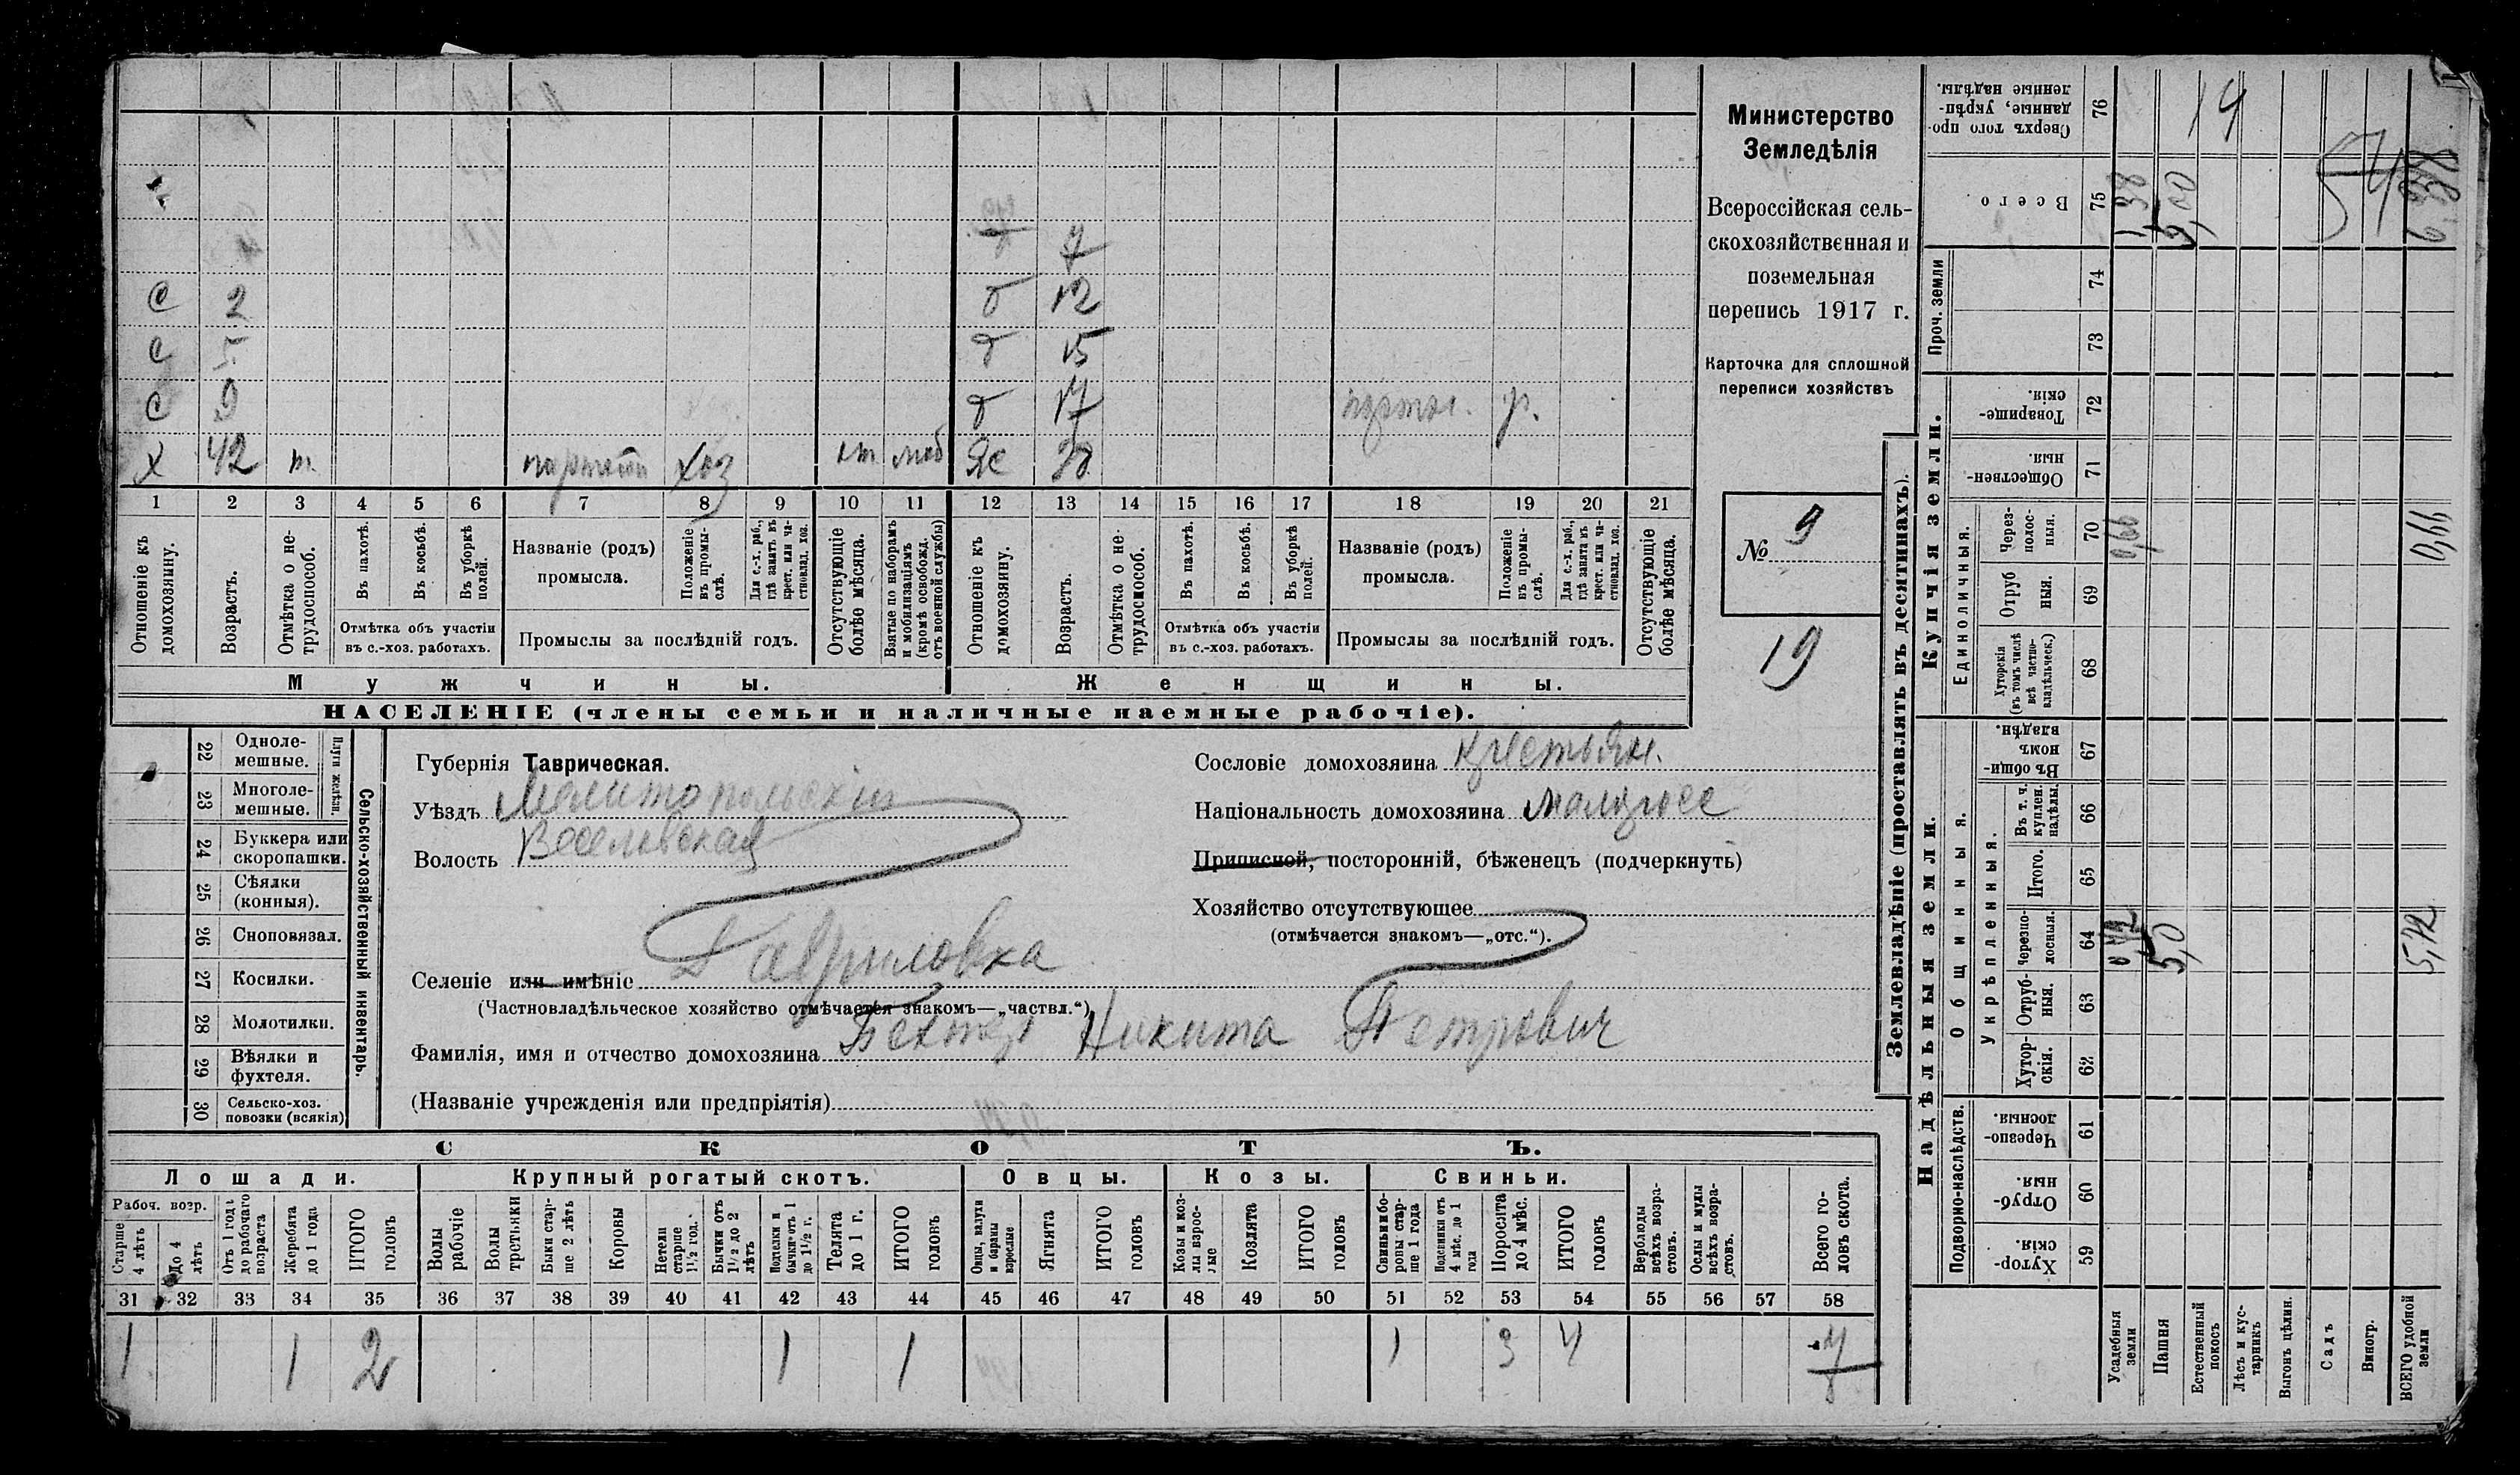 С 2 д 12
С 5 д 15
С 9 д 17 портн. р.
Х 42 т. портной хоз моб Же 38
1 2 3 4 5 6 7 8 9 10 11 12 13 14 15 16 17 18 19 20 21
Отношеніе къ домохозяину.
Возрастъ.
Отмѣтка о нетрудоспособ.
Въ пахотѣ.
Въ косьбѣ.
Въ уборкѣ полей.
Отмѣтка объ участіи
въ с.-хоз. работахъ.
Названіе (родъ)
промысла.
Положеніе въ промыслѣ.
Для с.-х. раб., гдѣ занятъ въ крест. или частновлад. хоз.
Промыслы за послѣдній годъ.
Отсутствующіе болѣе мѣсяца.
Взятые по наборамъ и мобилизаціямъ (кромѣ освобожд. отъ военной службы)
Отношеніе къ домохозяину.
Возрастъ.
Отмѣтка о нетрудоспособ.
Въ пахотѣ.
Въ косьбѣ.
Въ уборкѣ полей.
Отмѣтка объ участіи
въ с.-хоз. работахъ.
Названіе (родъ)
промысла.
Положеніе въ промыслѣ.
Для с.-х. раб., гдѣ занята въ крест. или частновлад. хоз.
Промыслы за послѣдній годъ.
Отсутствующіе болѣе мѣсяца.
Мужчины. Женщины.
НАСЕЛЕНІЕ (члены семьи и наличные наемные рабочіе).
Министерство
Земледѣлія
Всероссійская сель-
скохозяйственная и
поземельная
перепись 1917 г.
Карточка для сплошной
переписи хозяйствъ
№ 9
19
22 Одноле-
мешные.
23 Многоле-
мешные.
Плуги желѣзн.
24 Буккера или
скоропашки.
25 Сѣялки
(конныя).
26 Сноповязал.
27 Косилки.
28 Молотилки.
29 Вѣялки и
фухтеля.
30 Сельско-хоз.
повозки (всякія)
Сельско-хозяйственный инвентарь.
Губернія Таврическая.
Уѣздъ Мелитопольскій
Волость Веселовская
Селеніе или имѣніе Гавриловка
(Частновладѣльческое хозяйство отмѣчается знакомъ—„частвл.“)
Фамилія, имя и отчество домохозяина Никита Петрович
(Названіе учрежденія или предпріятія)
Сословіе домохозяина крестьян.
Національность домохозяина малоросс
Приписной, посторонній, бѣженецъ (подчеркнуть)
Хозяйство отсутствующее
(отмѣчается знакомъ—„отс.“).
СКОТЪ.
Лошади. Крупный рогатый скотъ. Овцы. Козы. Свиньи.
Рабоч. возр.
Старше 4 лѣтъ
До 4 лѣтъ
Отъ 1 года до рабочаго возраста
Жеребята до 1 года
ИТОГО головъ
Волы рабочіе
Волы третьяки
Быки старше 2 лѣтъ
Коровы
Нетели старше 1½ год.
Бычки отъ 1½ до 2 лѣтъ
Подтелки и бычки отъ 1 до 1½ г.
Телята до 1 г.
ИТОГО головъ
Овцы, валухи и бараны взрослые
Ягнята
ИТОГО головъ
Козы и козлы взрослые
Козлята
ИТОГО головъ
Свиньи и боровы старше 1 года
Подсвинки отъ 4 мѣс. до 1 года
Поросята до 4 мѣс.
ИТОГО головъ
Верблюды всѣхъ возрастовъ.
Ослы и мулы всѣхъ возрастовъ.
Всего головъ скота.
31 32 33 34 35 36 37 38 39 40 41 42 43 44 45 46 47 48 49 50 51 52 53 54 55 56 57 58
1 1 2 1 1 1 3 4
Землевладѣніе (проставлять въ десятинахъ).
Купчія земли.
Надѣльныя земли.
Сверхъ того проданные, укрѣпленные надѣлы. 76 14
Всего 75 1,38 5,00 6,38
54
Проч. земли 74 73
Товарищескія. 72
Общественныя. 71
Единоличныя.
Черезполосныя. 70 0,66 0,66
Отрубныя. 69
Хуторскія (въ томъ числѣ всѣ частновладѣльческ.) 68
Общинныя.
Въ общинномъ владѣн. 67
Укрѣпленныя.
Въ т. ч. куплен. надѣлы. 66
Итого. 65
Черезполосныя. 64 0,72 5,0 5,72
Отрубныя. 63
Хуторскія. 62
Подворно-наслѣдств.
Черезполосныя. 61
Отрубныя. 60
Хуторскія. 59
Усадебныя земли
Пашня
Естественный покосъ
Лѣсъ и кустарникъ
Выгонъ цѣлин.
Садъ
Виногр.
ВСЕГО удобной земли